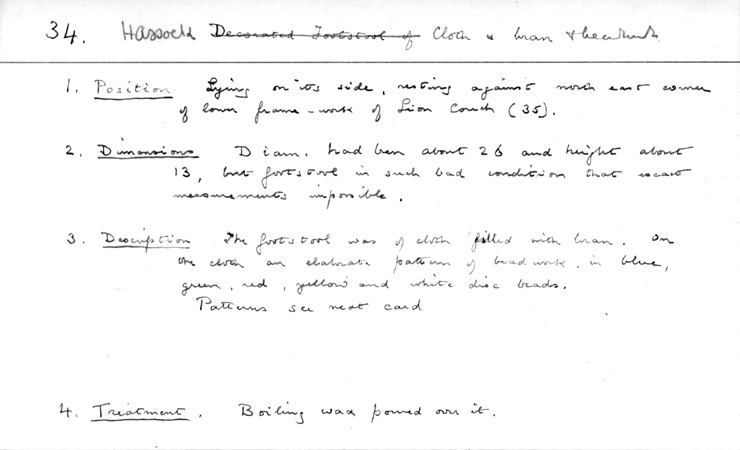 34. Hassock Decorated Footstool of Cloth & bran & beadwork
1. Position Lying on its side, resting against north east corner
of lower frame-work of Lion Couch (35).
2. Dimensions Diam. had been about 26 and height about
13, but footstool in such bad condition that exact
measurements impossible.
3. Description The footstool was of cloth filled with bran. On
the cloth an elaborate pattern of beadwork, in blue,
green, red, yellow and white disc beads.
Patterns see next card
4. Treatment. Boiling wax poured over it.